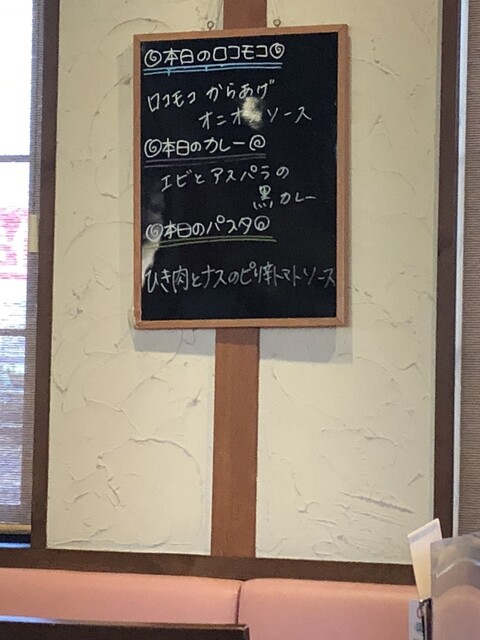 本日のロコモコ
ロコモコ からあげ
ソース
本日のカレー
エビとアスパラの
黒カレー
本日のパスタ
ひき肉とナスのピリ辛トマトソース